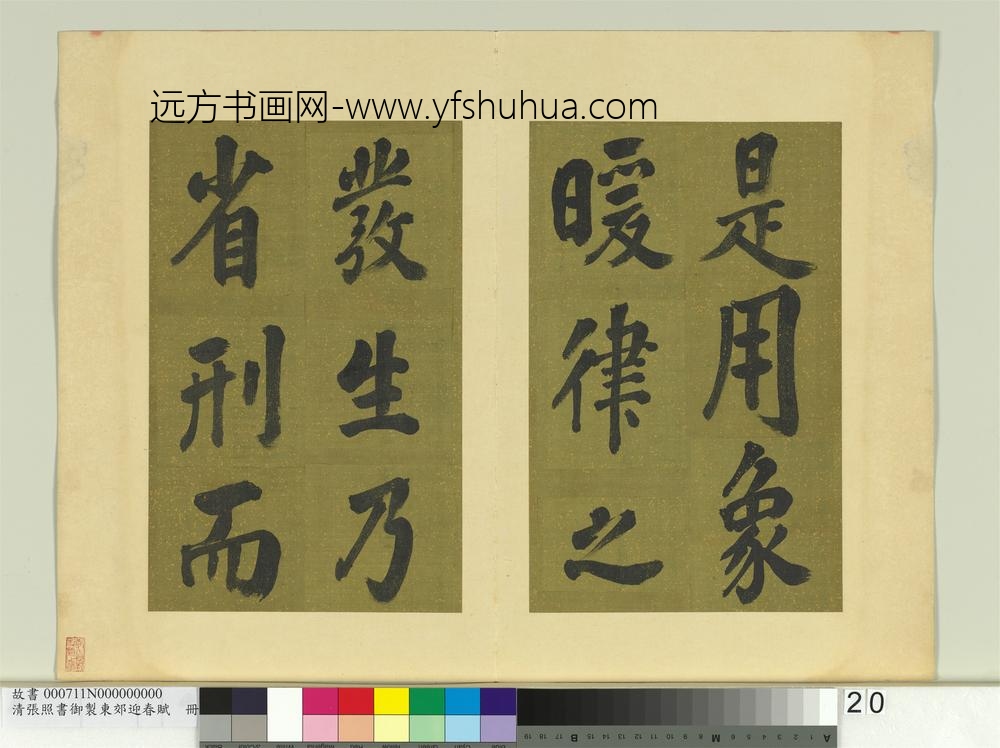 远方书画网-www.yfshuhua.com
是用象
暖律之
發生乃
省刑而
故書 000711N000000000
清張照書御製東郊迎春賦 冊
20